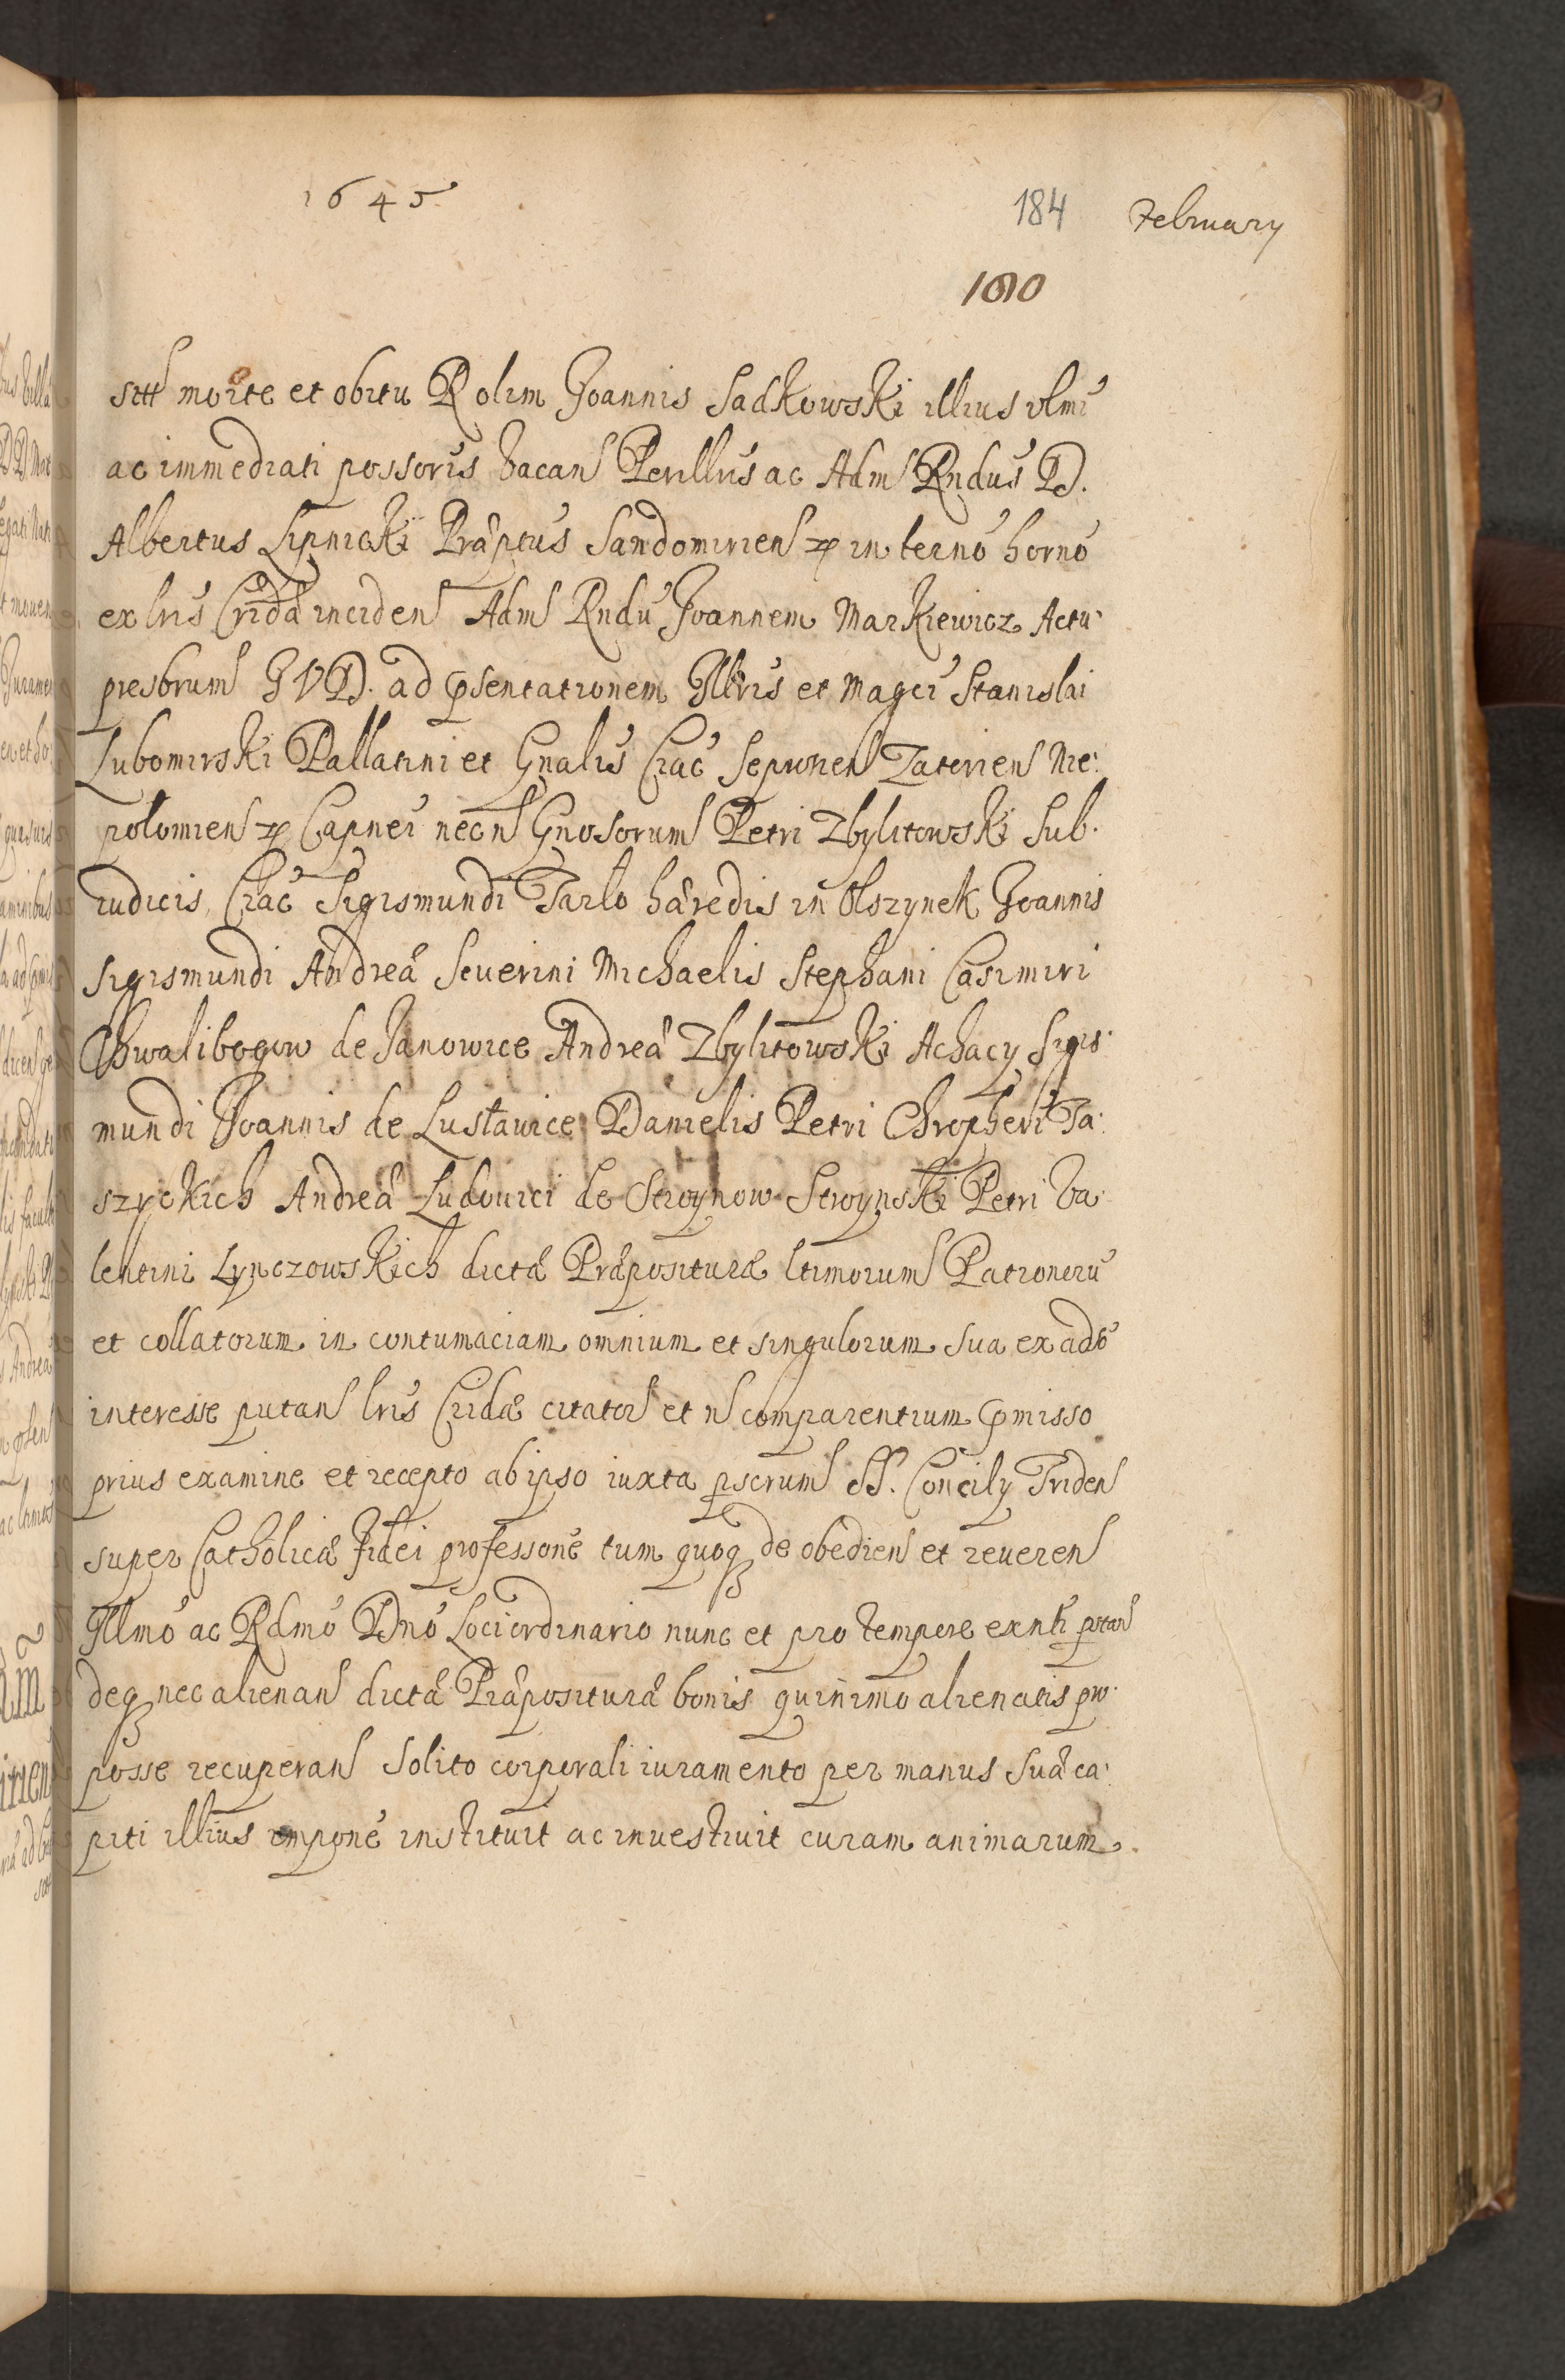 1645 184 February
1610
sitt morte et obitu R olim Joannis Sadkowski illius vlmi
ac immediati possoris vacan Perillris ac Adm Rndus D.
Albertus Lipnicki Præptus Sandomirien in termo horno
ex lris Cridæ inciden Adm Rndu Joannem Markiewicz Actu
presbrum J V D. ad psentationem Illris et Magci Stanislai
Lubomirski Pallatini et Gnalis Crac Sepusien Zatorien Nie:
polomien Capnei necn Gnosorum Petri Zbylitowski Sub.
iudicis Crac Sigismundi Tarlo hæredis in Olszynek Joannis
Sigismundi Andreæ Seuerini Michaelis Stephani Casimiri
Chwalibogow de Janowice Andreæ Zbylitowski Achacy Sigis:
mundi Joannis de Lusławice Danielis Petri Chropheri Ta:
szyckich Andreæ Ludouici de Stroynow Stroynski Petri Va:
lentini Lynczowskich dictæ Præposituræ ltimorum Patronoru
et collatorum in contumaciam omnium et singulorum sua ex adto
interesse putan lris Cridæ citator et n comparentium pmisso
prius examine et recepto ab ipso iuxta pscrum SS. Concily Triden
super Catholicæ fidei professone tum quoq de obedien et reueren
Illmo ac Rdmo Dno Loci ordinario nunc et pro tempore exnti pstan
deq nec alienan dictæ Præposituræ bonis quinimo alienatis pro
posse recuperan solito corporali iuramento per manus suæ ca:
piti illius impone instituit ac inuestiuit curam animarum